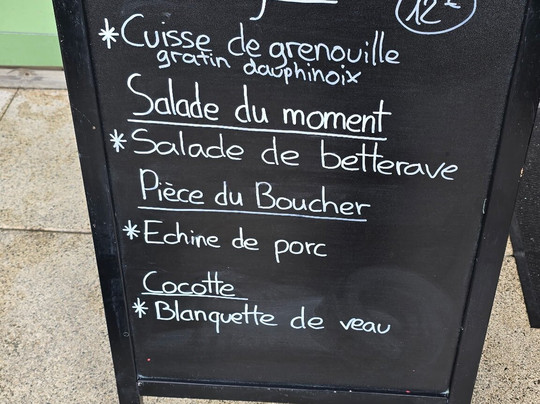 12€
*Cuisse de grenouille
gratin dauphinoix
Salade du moment
*Salade de betterave
Pièce du Boucher
*Echine de porc
Cocotte
*Blanquette de veau